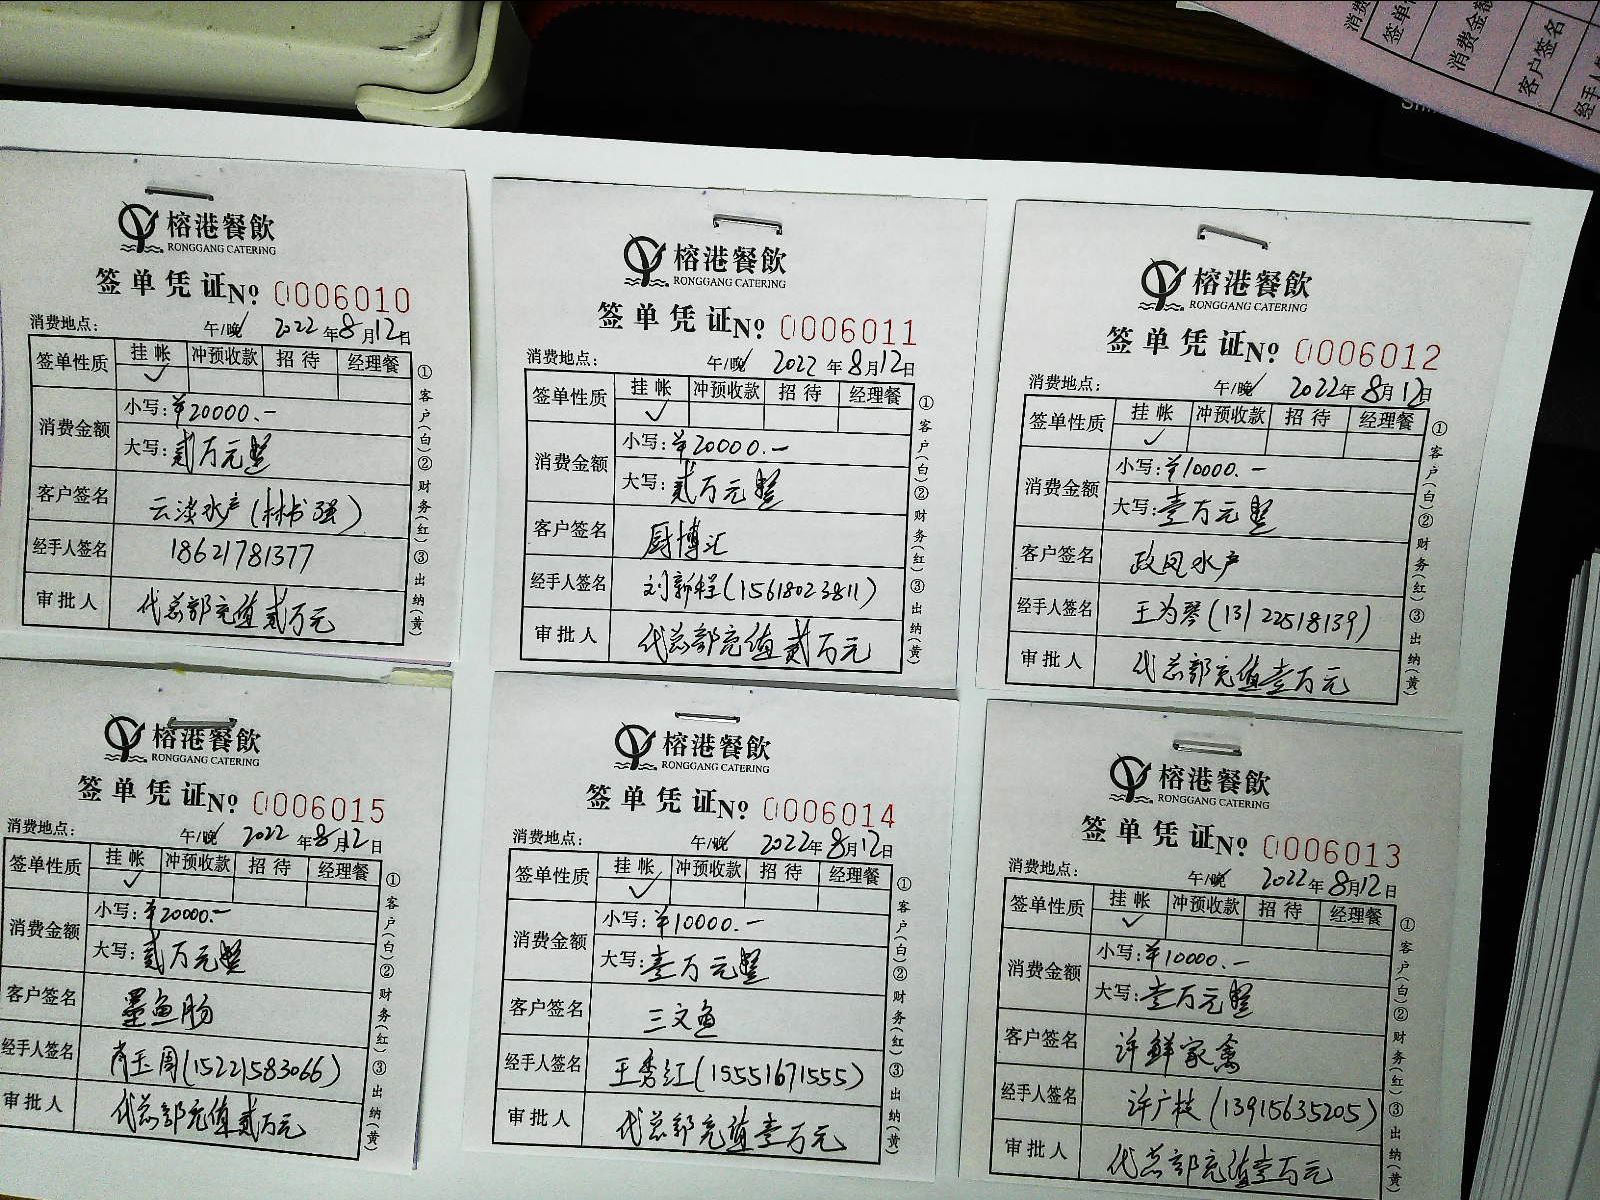 消费
签单
消费金额
客户签名
经手人
榕港餐飲
RONGGANG CATERING
签单凭证№ 0006010
消费地点： 午/晚 2022年8月12日
签单性质 挂帐 冲预收款 招待 经理餐
✓
消费金额 小写：¥20000.-
大写：贰万元整
客户签名 云淡水产(林书强)
经手人签名 18621781377
审批人 代总部充值贰万元
①客户(白)②财务(红)③出纳(黄)
榕港餐飲
RONGGANG CATERING
签单凭证№ 0006011
消费地点： 午/晚 2022年8月12日
签单性质 挂帐 冲预收款 招待 经理餐
✓
消费金额 小写：¥20000.-
大写：贰万元整
客户签名 厨博汇
经手人签名 刘新程(15618023811)
审批人 代总部充值贰万元
①客户(白)②财务(红)③出纳(黄)
榕港餐飲
RONGGANG CATERING
签单凭证№ 0006012
消费地点： 午/晚 2022年8月12日
签单性质 挂帐 冲预收款 招待 经理餐
✓
消费金额 小写：¥10000.-
大写：壹万元整
客户签名 政凤水产
经手人签名 王为琴(13122518139)
审批人 代总部充值壹万元
①客户(白)②财务(红)③出纳(黄)
榕港餐飲
RONGGANG CATERING
签单凭证№ 0006015
消费地点： 午/晚 2022年8月12日
签单性质 挂帐 冲预收款 招待 经理餐
✓
消费金额 小写：¥20000.-
大写：贰万元整
客户签名 墨鱼肠
经手人签名 肖玉周(15221583066)
审批人 代总部充值贰万元
①客户(白)②财务(红)③出纳(黄)
榕港餐飲
RONGGANG CATERING
签单凭证№ 0006014
消费地点： 午/晚 2022年8月12日
签单性质 挂帐 冲预收款 招待 经理餐
✓
消费金额 小写：¥10000.-
大写：壹万元整
客户签名 三文鱼
经手人签名 王秀红(15551671555)
审批人 代总部充值壹万元
①客户(白)②财务(红)③出纳(黄)
榕港餐飲
RONGGANG CATERING
签单凭证№ 0006013
消费地点： 午/晚 2022年8月12日
签单性质 挂帐 冲预收款 招待 经理餐
✓
消费金额 小写：¥10000.-
大写：壹万元整
客户签名 许鲜家禽
经手人签名 许广枝(13915635205)
审批人 代总部充值壹万元
①客户(白)②财务(红)③出纳(黄)